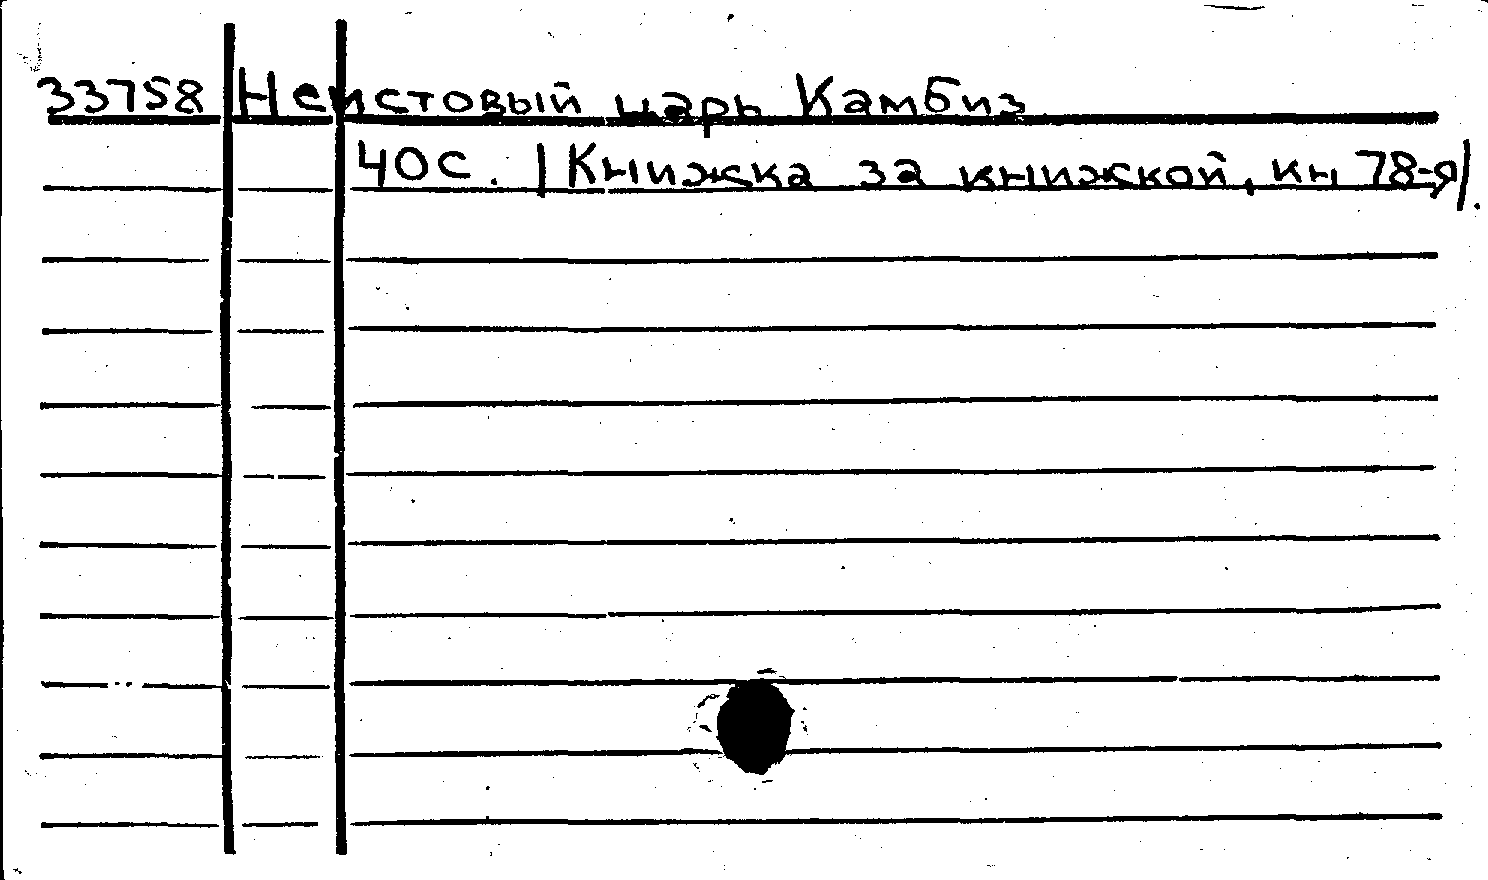 33758 Неистовый царь Камбиз
40с. /Книжка за книжкой, кн 78-я/.